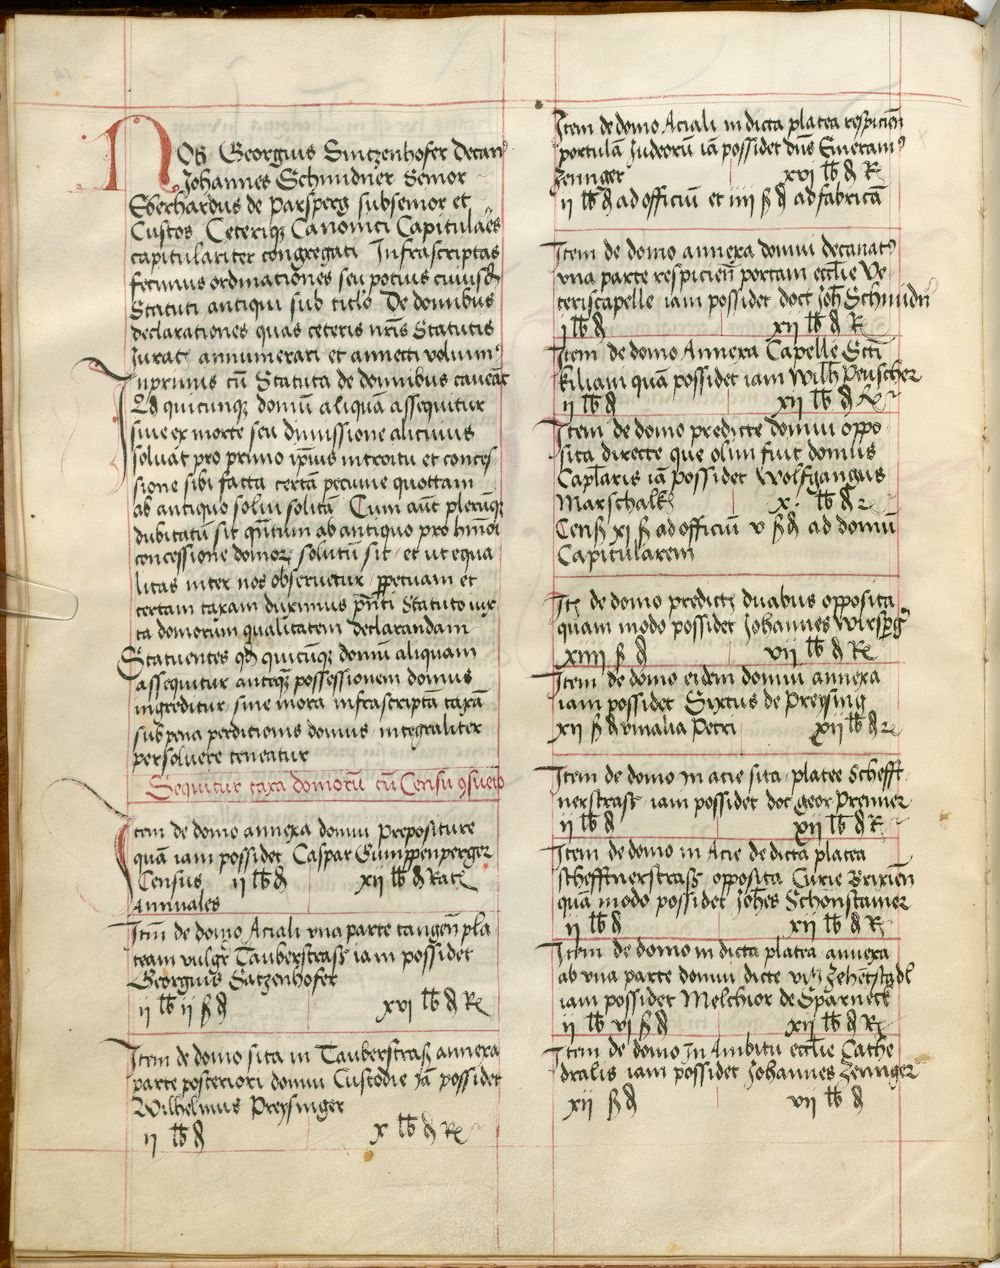 NOS Georgius Sintzenhofer Decan⁹
Johannes Schmidner Senior
Eberhardus de Parsperg subsenior et
Custos Ceteriqꝫ Canonici Capitulares
capitulariter congregati Infrascriptas
fecimus ordinationes seu potius cuiusdā
Statuti antiqui sub titlo De domibus
declarationes quas ceteris nr̄is Statutis
Jurat annumerari et annecti volum⁹
Inprimis cū Statuta de domibus caveāt
Qd quicunqꝫ domū aliquā assequitur
siue ex morte seu dimissione alicuius
soluat pro primo ip̄ius introitu et conces-
sione sibi facta certā pecunie quottam
ab antiquo solui solitā Cum aūt plerūqꝫ
dubitatū sit qn̄tum ab antiquo pro hm̄oi
concessione domoꝝ solutū sit et ut equa
litas inter nos obseruetur ꝑpetuam et
certam taxam duximus pn̄ti Statuto iux
ta domorum qualitatem declarandam
Statuentes qd quicūqꝫ domū aliquam
assequitur anteqꝫ possessionem domus
ingreditur sine mora infrascriptā taxā
sub pena perditionis domus integraliter
persoluere teneatur
Sequitur taxa domorū cū Censu ꝯsueto
Item de domo annexa domui prepositure
quā iam possidet Caspar Gumppenperger
Census ii lb ₰ xii lb ₰ Ratꝫ
Annuales
Itm̄ de domo Aciali vna parte tangen̄ pla
team vulgr̄ Tauberstrass iam possidet
Georgius Satzenhofer
ii lb ii ß ₰ xvi lb ₰ R
Item de domo sita in Tauberstraß annexa
parte posteriori domui Custodie Jā possidet
Wilhelmus Preysinger
ii lb ₰ x lb ₰ R
Item de domo Aciali in dicta platea respicien̄
portulā Judeorū iā possidet dn̄s Emeram⁹
Zennger xvi lb ₰ R
ii lb ₰ ad officiū et iiii ß ₰ ad fabricā
Item de domo annexa domui decanat⁹
vna parte respicien̄ portam eccl̄ie Ve-
teriscapelle iam possidet doct Joh̄ Schmidn̄
i lb ₰ xii lb ₰ R
Item de domo Annexa Capelle Sct̄i
kiliani quā possidet iam wilh̄ Peuscher
ii lb ₰ xii lb ₰ R
Item de domo predicte domui oppo-
sita directe que olim fuit domus
Capl̄aris iā possidet Wolfgangus
Marschalk x lb ₰ R
Cens xi ß ad officiū v ß ₰ ad domū
Capitularem
Itꝫ de domo predictꝫ duabus opposita
quam modo possidet Johannes Wirsp̄g
xiiii ß ₰ vii lb ₰ R
Item de domo eidem domui annexa
iam possidet Sixtus de Preysing
xii ß ₰ vinalia Petri xii lb ₰ R
Item de domo in acie sita platee Schefft-
nerstrass iam possidet doc geor Premer
ii lb ₰ xii lb ₰ R
Item de domo in Acie de dicta platea
schefftnerstrass opposita Curie Brixien̄
quā modo possidet Joh̄es Schonstainer
ii lb ₰ xii lb ₰ R
Item de domo in dicta platea annexa
ab vna parte domui dicte vulg Zehentstadl
iam possidet Melchior de Sparneck
ii lb vi ß ₰ xii lb ₰ R
Item de domo In Ambitu eccl̄ie Cathe
dralis iam possidet Johannes Zennger
xii ß ₰ vii lb ₰